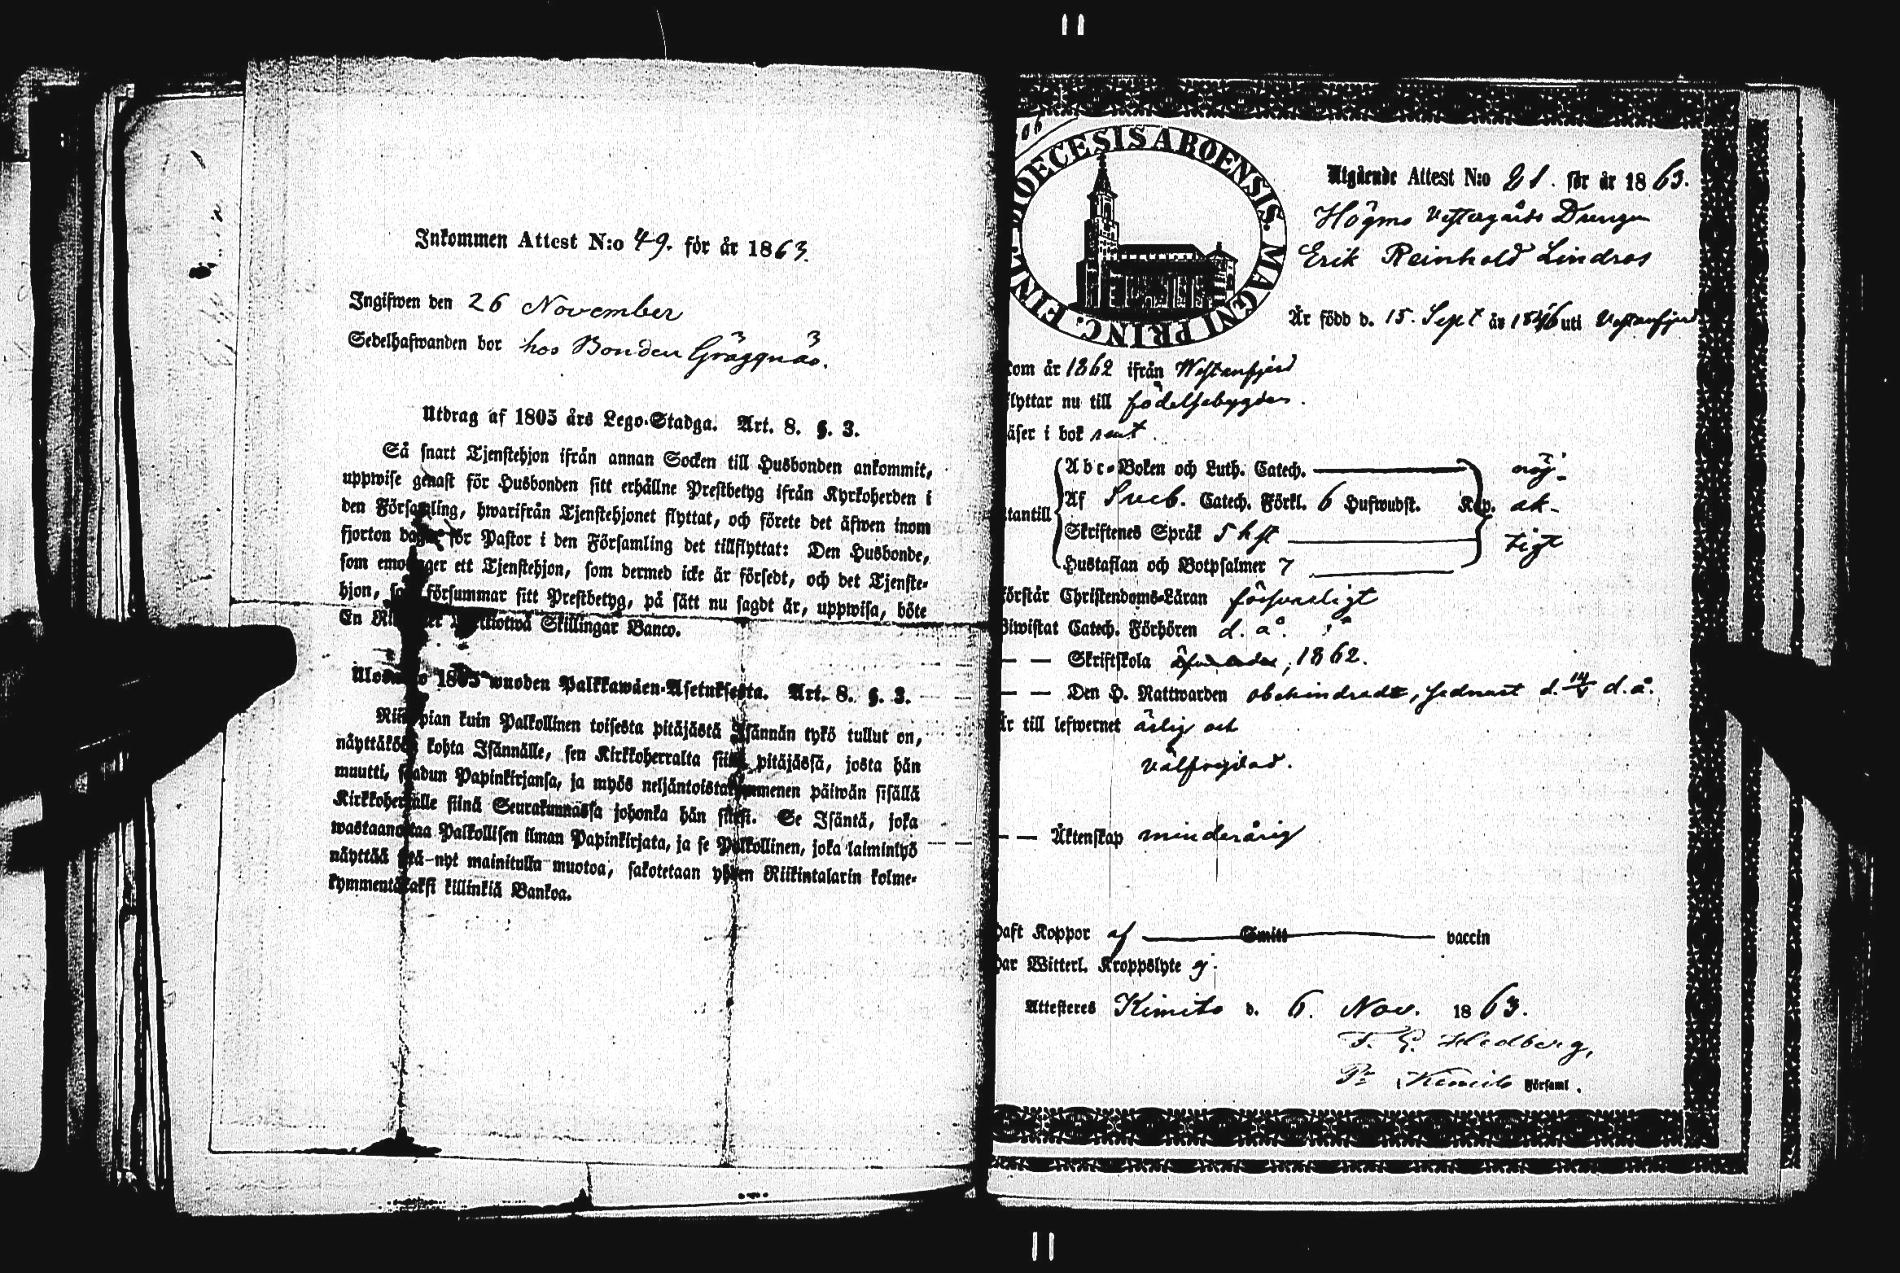 Inkommen Attest N:o 49. för år 1863.
Ingifwen den 26 November
Sedelhafwanden bor hos Bonden Gräggnäs.
Utdrag af 1805 års Lego-Stadga. Art. 8. §. 3.
Så snart Tjenstehjon ifrån annan Socken till Husbonden ankommit,
uppwise genast för Husbonden sitt erhållne Prestbetyg ifrån Kyrkoherden i
den Församling, hwarifrån Tjenstehjonet flyttat, och förete det äfwen inom
fjorton dagar för Pastor i den Församling det tillflyttat: Den Husbonde,
som emottager ett Tjenstehjon, som dermed icke är försedt, och det Tjenste-
hjon, som försummar sitt Prestbetyg, på sätt nu sagdt är, uppwisa, böte
En Skillingar Banco.
1805 wuoden Palkkawäen-Asetuksesta. Art. 8. §. 3.
kuin Palkollinen toisesta pitäjästä Isännän tykö tullut on,
näyttäköön kohta Isännälle, sen Kirkkoherralta siinä pitäjässä, josta hän
muutti, saadun Papinkirjansa, ja myös neljäntoistakymmenen päiwän sisällä
Kirkkoherralle siinä Seurakunnassa johonka hän siirsi. Se Isäntä, joka
wastaanottaa Palkollisen ilman Papinkirjata, ja se Palkollinen, joka laiminlyö
näyttää sitä nyt mainitulla muotoa, sakotetaan yhden Riikintalarin kolme-
kymmentäkaksi killinkiä Bankoa.
DIOECESIS ABOENSIS. MAGNI PRINC. FINL.
Utgående Attest N:o 21. för år 1863.
Högmo Vestergårds Drengen
Erik Reinhold Lindros
Är född d. 15. Sept år 1846 uti Vestanfjerd
kom år 1862 ifrån Westanfjerd
flyttar nu till födelsebygden.
läser i bok rent.
Abc-Boken och Luth. Catech. nöj-
Af Sveb. Catech. Förkl. 6 Hufwudst. Kap. ak-
utantill
Skriftenes Språk 5 hft tigt
Hustaflan och Botpsalmer 7
förstår Christendoms-Läran försvarligt
Biwistat Catech. Förhören d. å.
— — Skriftskola , 1862.
— — Den H. Nattwarden obehindradt, sednast d. 14/5 d. å.
Är till lefwernet ärlig och
välfrejdad.
— — Äktenskap minderårig
haft Koppor af Smitt vaccin
har Witterl. Kroppslyte ej.
Attesteres Kimito d. 6. Nov. 1863.
F. G. Hedberg,
Pr Kimito Församl.